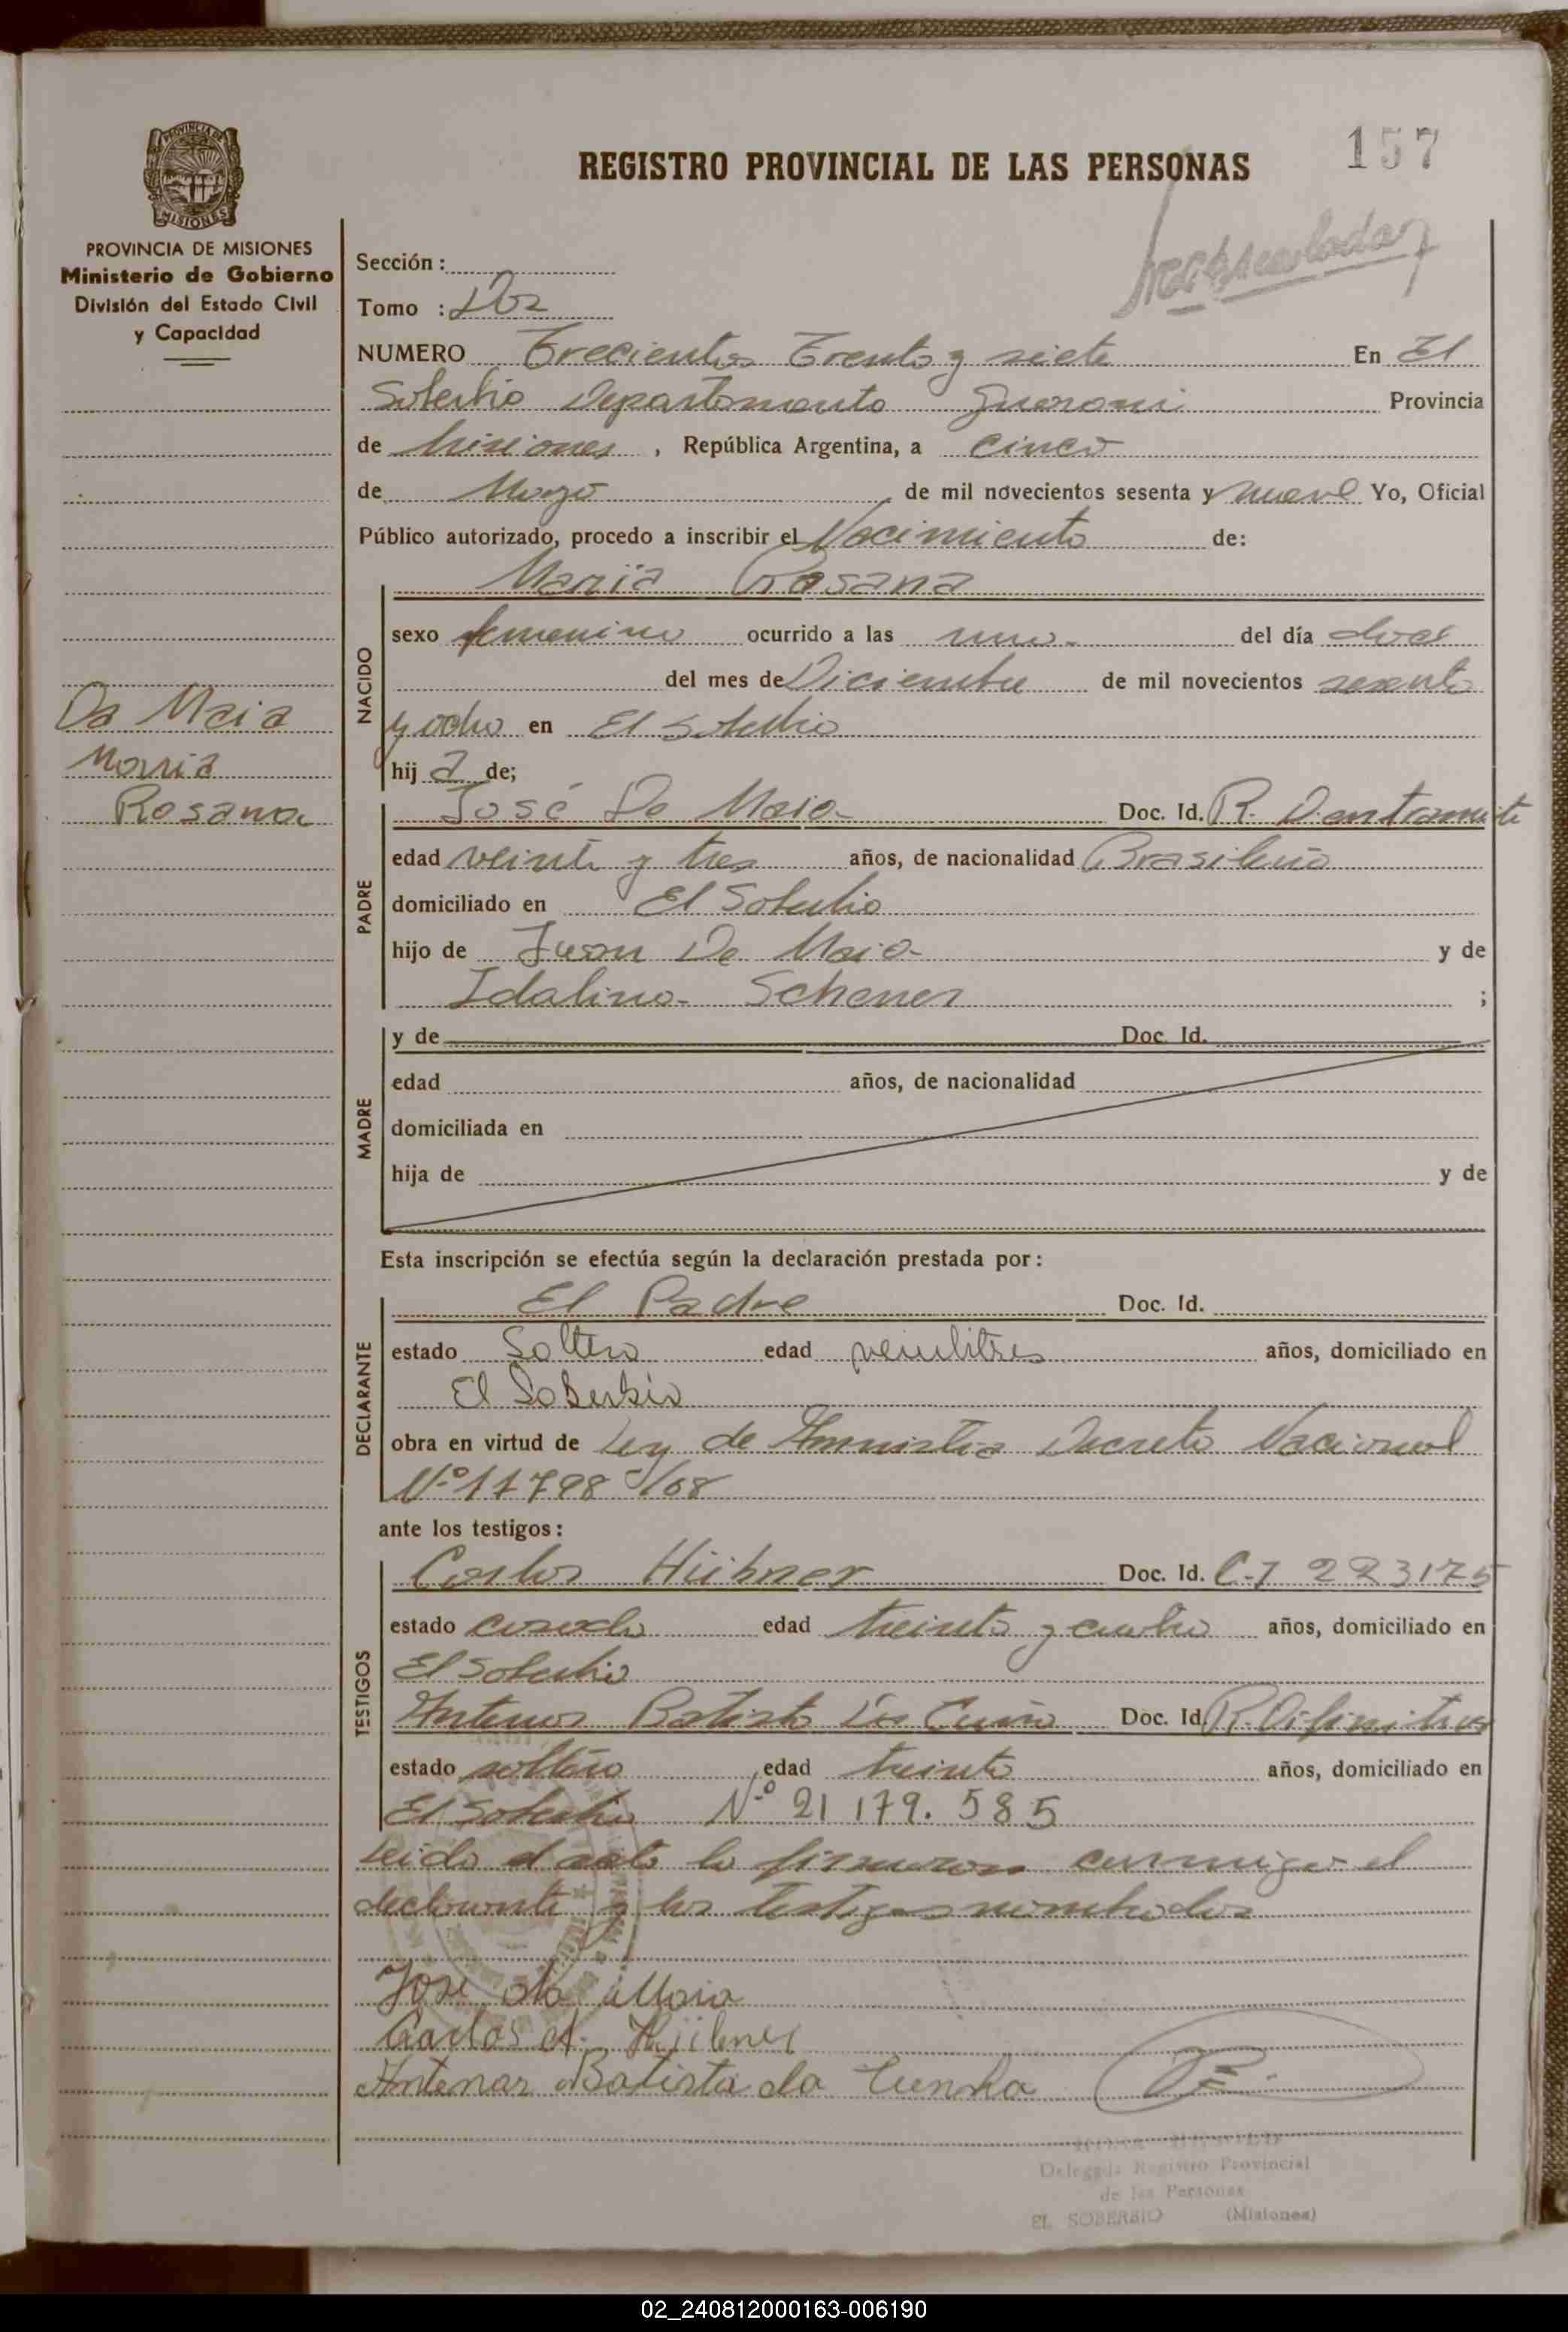 157
REGISTRO PROVINCIAL DE LAS PERSONAS
PROVINCIA DE
MISIONES
PROVINCIA DE MISIONES
Ministerio de Gobierno
División del Estado Civil
y Capacidad
Sección :
Tomo : Dos
NUMERO Trecientos Trenta y siete En El
Soberbio Departamento Guarani Provincia
de Misiones , República Argentina, a cinco
de Mayo de mil novecientos sesenta y nueve Yo, Oficial
Público autorizado, procedo a inscribir el Nacimiento de:
Maria Rosana
NACIDO
sexo femenino ocurrido a las una del día doce
del mes de Diciembre de mil novecientos sesenta
y ocho en El Soberbio
hij a de;
Da Maia
Maria
Rosana
PADRE
José Da Maia Doc. Id. R. D. en tramite
edad veinte y tres años, de nacionalidad Brasileño
domiciliado en El Soberbio
hijo de Juan Da Maia y de
Idalina Schener ;
MADRE
y de Doc. Id.
edad años, de nacionalidad
domiciliada en
hija de y de
Esta inscripción se efectúa según la declaración prestada por :
DECLARANTE
El Padre Doc. Id.
estado Soltero edad veintitres años, domiciliado en
El Soberbio
obra en virtud de Ley de Amnistia Decreto Nacional
Nº 17798/68
ante los testigos :
TESTIGOS
Carlos Hübner Doc. Id. C.I 223175
estado casado edad treinta y cuatro años, domiciliado en
El Soberbio
Antenor Batista Da Cuña Doc. Id R. Difinitiva
estado soltero edad treinta años, domiciliado en
El Soberbio Nº 21 179. 585
Leida el acta la firmaron conmigo el
declarante y los testigos nombrados
José da Maia
Carlos A. Hübner
Antenor Batista da Cunha
Delegada Registro Provincial
de las Personas
EL SOBERBIO (Misiones)
02_240812000163-006190